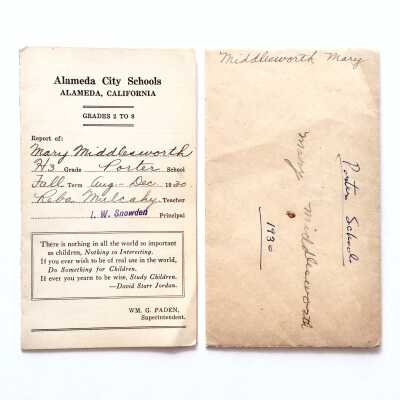 Alameda City Schools
ALAMEDA, CALIFORNIA
GRADES 2 TO 8
Report of:
Mary Middlesworth
H3 Grade Porter School
Fall Term Aug - Dec. 1930
Reba Mulcahy Teacher
I. W. Snowden Principal
There is nothing in all the world so important
as children, Nothing so Interesting.
If you ever wish to be of real use in the world,
Do Something for Children.
If ever you yearn to be wise, Study Children.
—David Starr Jordan.
WM. G. PADEN,
Superintendent.
Middlesworth Mary
Mary Middlesworth
Porter School
1930